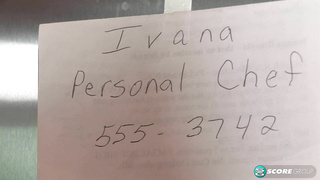 Ivana
Personal Chef
555-3742
SCOREGROUP